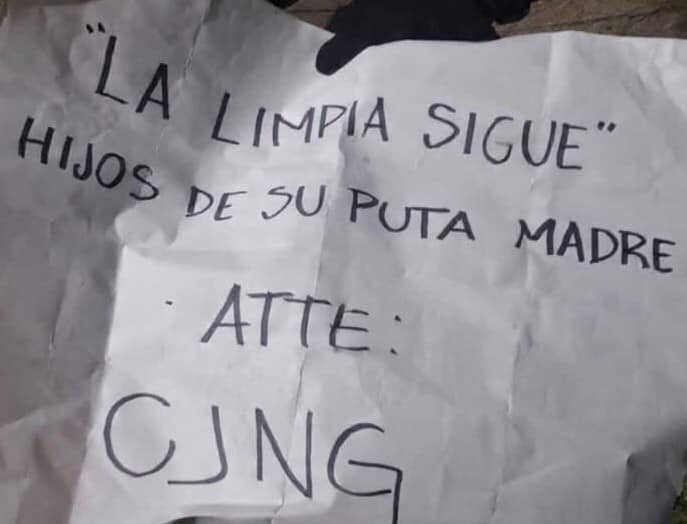 "LA LIMPIA SIGUE"
HIJOS DE SU PUTA MADRE
ATTE:
CJNG